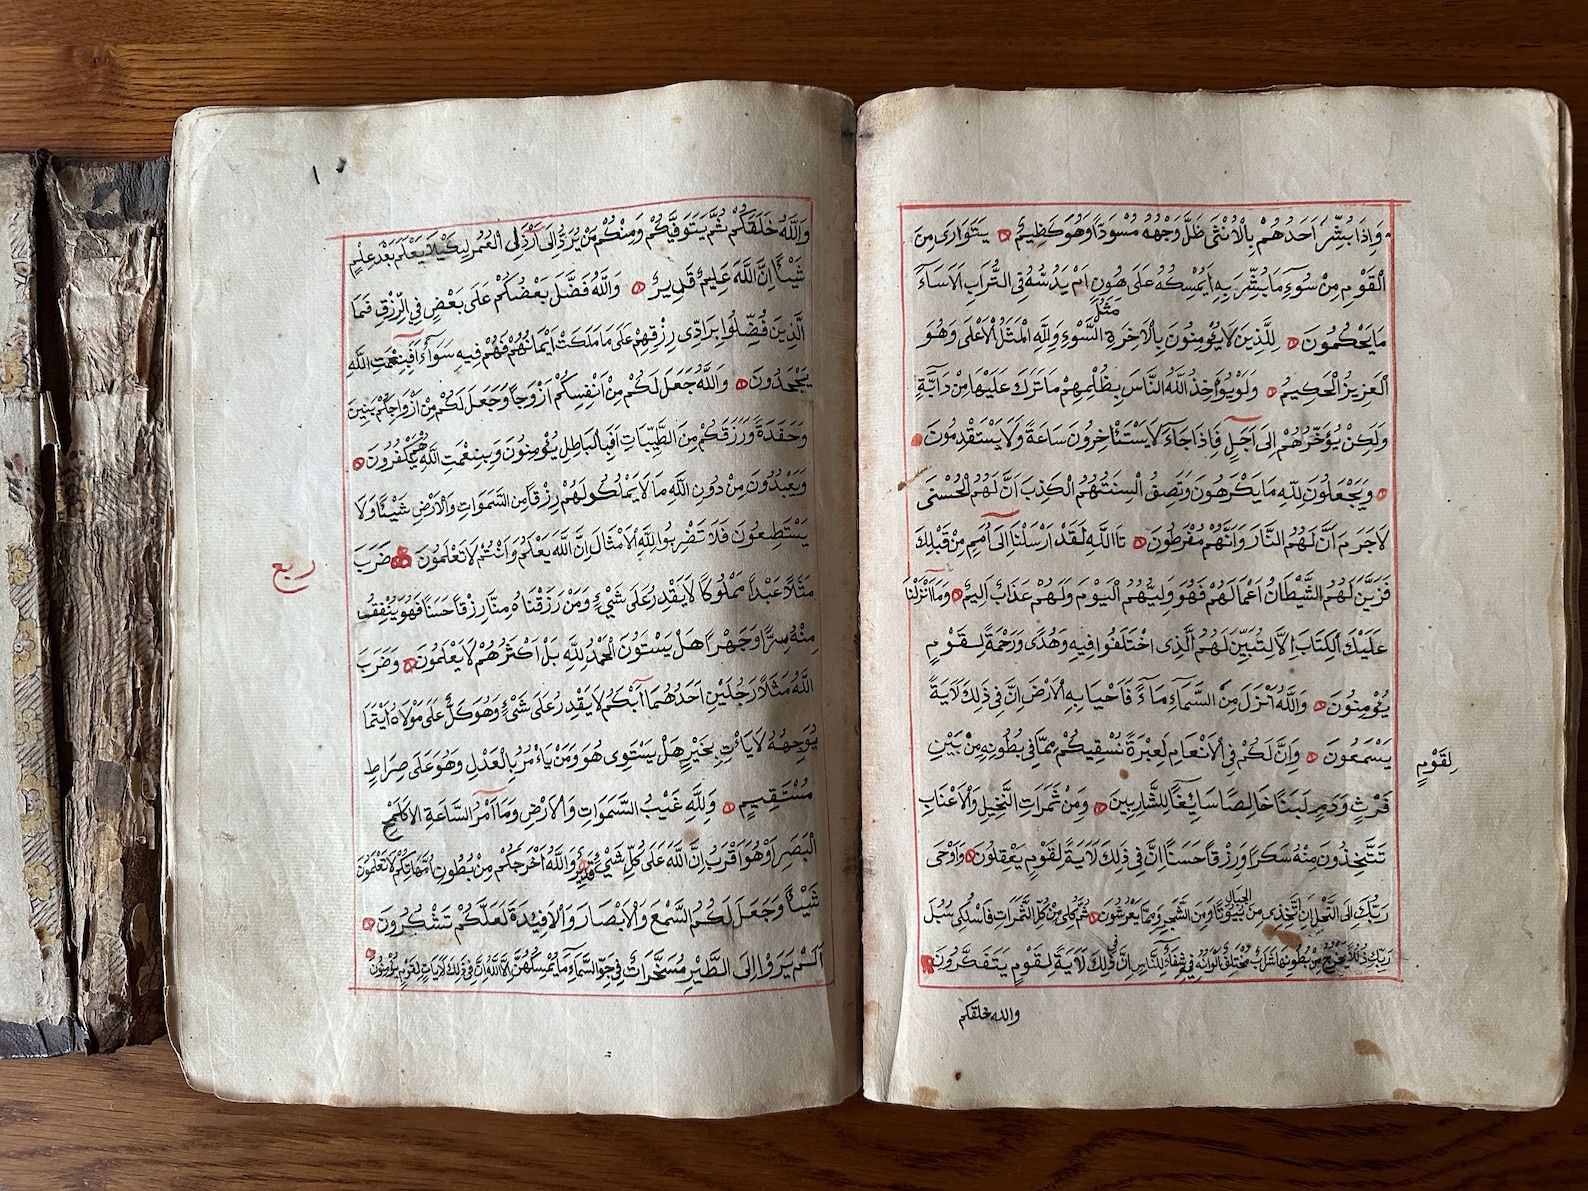 وَاِذَا بُشِّرَ اَحَدُهُمْ بِالْاُنْثَى ظَلَّ وَجْهُهُ مُسْوَدًّا وَهُوَ كَظِيمٌ يَتَوَارَى مِنَ
الْقَوْمِ مِنْ سُوءِ مَا بُشِّرَ بِهِ اَيُمْسِكُهُ عَلَى هُونٍ اَمْ يَدُسُّهُ فِى التُّرَابِ اَلَا سَاءَ
مَا يَحْكُمُونَ لِلَّذِينَ لَا يُؤْمِنُونَ بِالْاخِرَةِ مَثَلُ السَّوْءِ وَلِلَّهِ الْمَثَلُ الْاَعْلَى وَهُوَ
الْعَزِيزُ الْحَكِيمُ وَلَوْ يُؤَاخِذُ اللَّهُ النَّاسَ بِظُلْمِهِمْ مَا تَرَكَ عَلَيْهَا مِنْ دَابَّةٍ
وَلَكِنْ يُؤَخِّرُهُمْ اِلَى اَجَلٍ فَاِذَا جَاءَ لَا يَسْتَأْخِرُونَ سَاعَةً وَلَا يَسْتَقْدِمُونَ
وَيَجْعَلُونَ لِلَّهِ مَا يَكْرَهُونَ وَتَصِفُ اَلْسِنَتُهُمُ الْكَذِبَ اَنَّ لَهُمُ الْحُسْنَى
لَا جَرَمَ اَنَّ لَهُمُ النَّارَ وَاَنَّهُمْ مُفْرَطُونَ تَاللَّهِ لَقَدْ اَرْسَلْنَا اِلَى اُمَمٍ مِنْ قَبْلِكَ
فَزَيَّنَ لَهُمُ الشَّيْطَانُ اَعْمَالَهُمْ فَهُوَ وَلِيُّهُمُ الْيَوْمَ وَلَهُمْ عَذَابٌ اَلِيمٌ وَمَا اَنْزَلْنَا
عَلَيْكَ الْكِتَابَ اِلَّا لِتُبَيِّنَ لَهُمُ الَّذِى اخْتَلَفُوا فِيهِ وَهُدًى وَرَحْمَةً لِقَوْمٍ
يُؤْمِنُونَ وَاللَّهُ اَنْزَلَ مِنَ السَّمَاءِ مَاءً فَاَحْيَا بِهِ الْاَرْضَ اِنَّ فِى ذَلِكَ لَايَةً
يَسْمَعُونَ وَاِنَّ لَكُمْ فِى الْاَنْعَامِ لَعِبْرَةً نُسْقِيكُمْ مِمَّا فِى بُطُونِهِ مِنْ بَيْنِ
لِقَوْمٍ
فَرْثٍ وَدَمٍ لَبَنًا خَالِصًا سَائِغًا لِلشَّارِبِينَ وَمِنْ ثَمَرَاتِ النَّخِيلِ وَالْاَعْنَابِ
تَتَّخِذُونَ مِنْهُ سَكَرًا وَرِزْقًا حَسَنًا اِنَّ فِى ذَلِكَ لَايَةً لِقَوْمٍ يَعْقِلُونَ وَاَوْحَى
رَبُّكَ اِلَى النَّحْلِ اَنِ اتَّخِذِى مِنَ الْجِبَالِ بُيُوتًا وَمِنَ الشَّجَرِ وَمِمَّا يَعْرِشُونَ ثُمَّ كُلِى مِنْ كُلِّ الثَّمَرَاتِ فَاسْلُكِى سُبُلَ
رَبِّكِ ذُلُلًا يَخْرُجُ مِنْ بُطُونِهَا شَرَابٌ مُخْتَلِفٌ اَلْوَانُهُ فِيهِ شِفَاءٌ لِلنَّاسِ اِنَّ فِى ذَلِكَ لَايَةً لِقَوْمٍ يَتَفَكَّرُونَ
والله خلقكم
وَاللَّهُ خَلَقَكُمْ ثُمَّ يَتَوَفَّيكُمْ وَمِنْكُمْ مَنْ يُرَدُّ اِلَى اَرْذَلِ الْعُمُرِ لِكَيْلَا يَعْلَمَ بَعْدَ عِلْمٍ
شَيْئًا اِنَّ اللَّهَ عَلِيمٌ قَدِيرٌ وَاللَّهُ فَضَّلَ بَعْضَكُمْ عَلَى بَعْضٍ فِى الرِّزْقِ فَمَا
الَّذِينَ فُضِّلُوا بِرَادِّى رِزْقِهِمْ عَلَى مَا مَلَكَتْ اَيْمَانُهُمْ فَهُمْ فِيهِ سَوَاءٌ اَفَبِنِعْمَتِ اللَّهِ
يَجْحَدُونَ وَاللَّهُ جَعَلَ لَكُمْ مِنْ اَنْفُسِكُمْ اَزْوَاجًا وَجَعَلَ لَكُمْ مِنْ اَزْوَاجِكُمْ بَنِينَ
وَحَفَدَةً وَرَزَقَكُمْ مِنَ الطَّيِّبَاتِ اَفَبِالْبَاطِلِ يُؤْمِنُونَ وَبِنِعْمَتِ اللَّهِ هُمْ يَكْفُرُونَ
وَيَعْبُدُونَ مِنْ دُونِ اللَّهِ مَا لَا يَمْلِكُ لَهُمْ رِزْقًا مِنَ السَّمَوَاتِ وَالْاَرْضِ شَيْئًا وَلَا
يَسْتَطِعُونَ فَلَا تَضْرِبُوا لِلَّهِ الْاَمْثَالَ اِنَّ اللَّهَ يَعْلَمُ وَاَنْتُمْ لَا تَعْلَمُونَ ضَرَبَ
ربع
مَثَلًا عَبْدًا مَمْلُوكًا لَا يَقْدِرُ عَلَى شَيْءٍ وَمَنْ رَزَقْنَاهُ مِنَّا رِزْقًا حَسَنًا فَهُوَ يُنْفِقُ
مِنْهُ سِرًّا وَجَهْرًا هَلْ يَسْتَوُنَ الْحَمْدُ لِلَّهِ بَلْ اَكْثَرُهُمْ لَا يَعْلَمُونَ وَضَرَبَ
اللَّهُ مَثَلًا رَجُلَيْنِ اَحَدُهُمَا اَبْكَمُ لَا يَقْدِرُ عَلَى شَيْءٍ وَهُوَ كَلٌّ عَلَى مَوْلَاهُ اَيْنَمَا
يُوَجِّهْهُ لَا يَأْتِ بِخَيْرٍ هَلْ يَسْتَوِى هُوَ وَمَنْ يَأْمُرُ بِالْعَدْلِ وَهُوَ عَلَى صِرَاطٍ
مُسْتَقِيمٍ وَلِلَّهِ غَيْبُ السَّمَوَاتِ وَالْاَرْضِ وَمَا اَمْرُ السَّاعَةِ اِلَّا كَلَمْحِ
الْبَصَرِ اَوْ هُوَ اَقْرَبُ اِنَّ اللَّهَ عَلَى كُلِّ شَيْءٍ قَدِيرٌ وَاللَّهُ اَخْرَجَكُمْ مِنْ بُطُونِ اُمَّهَاتِكُمْ لَا تَعْلَمُونَ
شَيْئًا وَجَعَلَ لَكُمُ السَّمْعَ وَالْاَبْصَارَ وَالْاَفْئِدَةَ لَعَلَّكُمْ تَشْكُرُونَ
اَلَمْ يَرَوْا اِلَى الطَّيْرِ مُسَخَّرَاتٍ فِى جَوِّ السَّمَاءِ مَا يُمْسِكُهُنَّ اِلَّا اللَّهُ اِنَّ فِى ذَلِكَ لَايَاتٍ لِقَوْمٍ يُؤْمِنُونَ